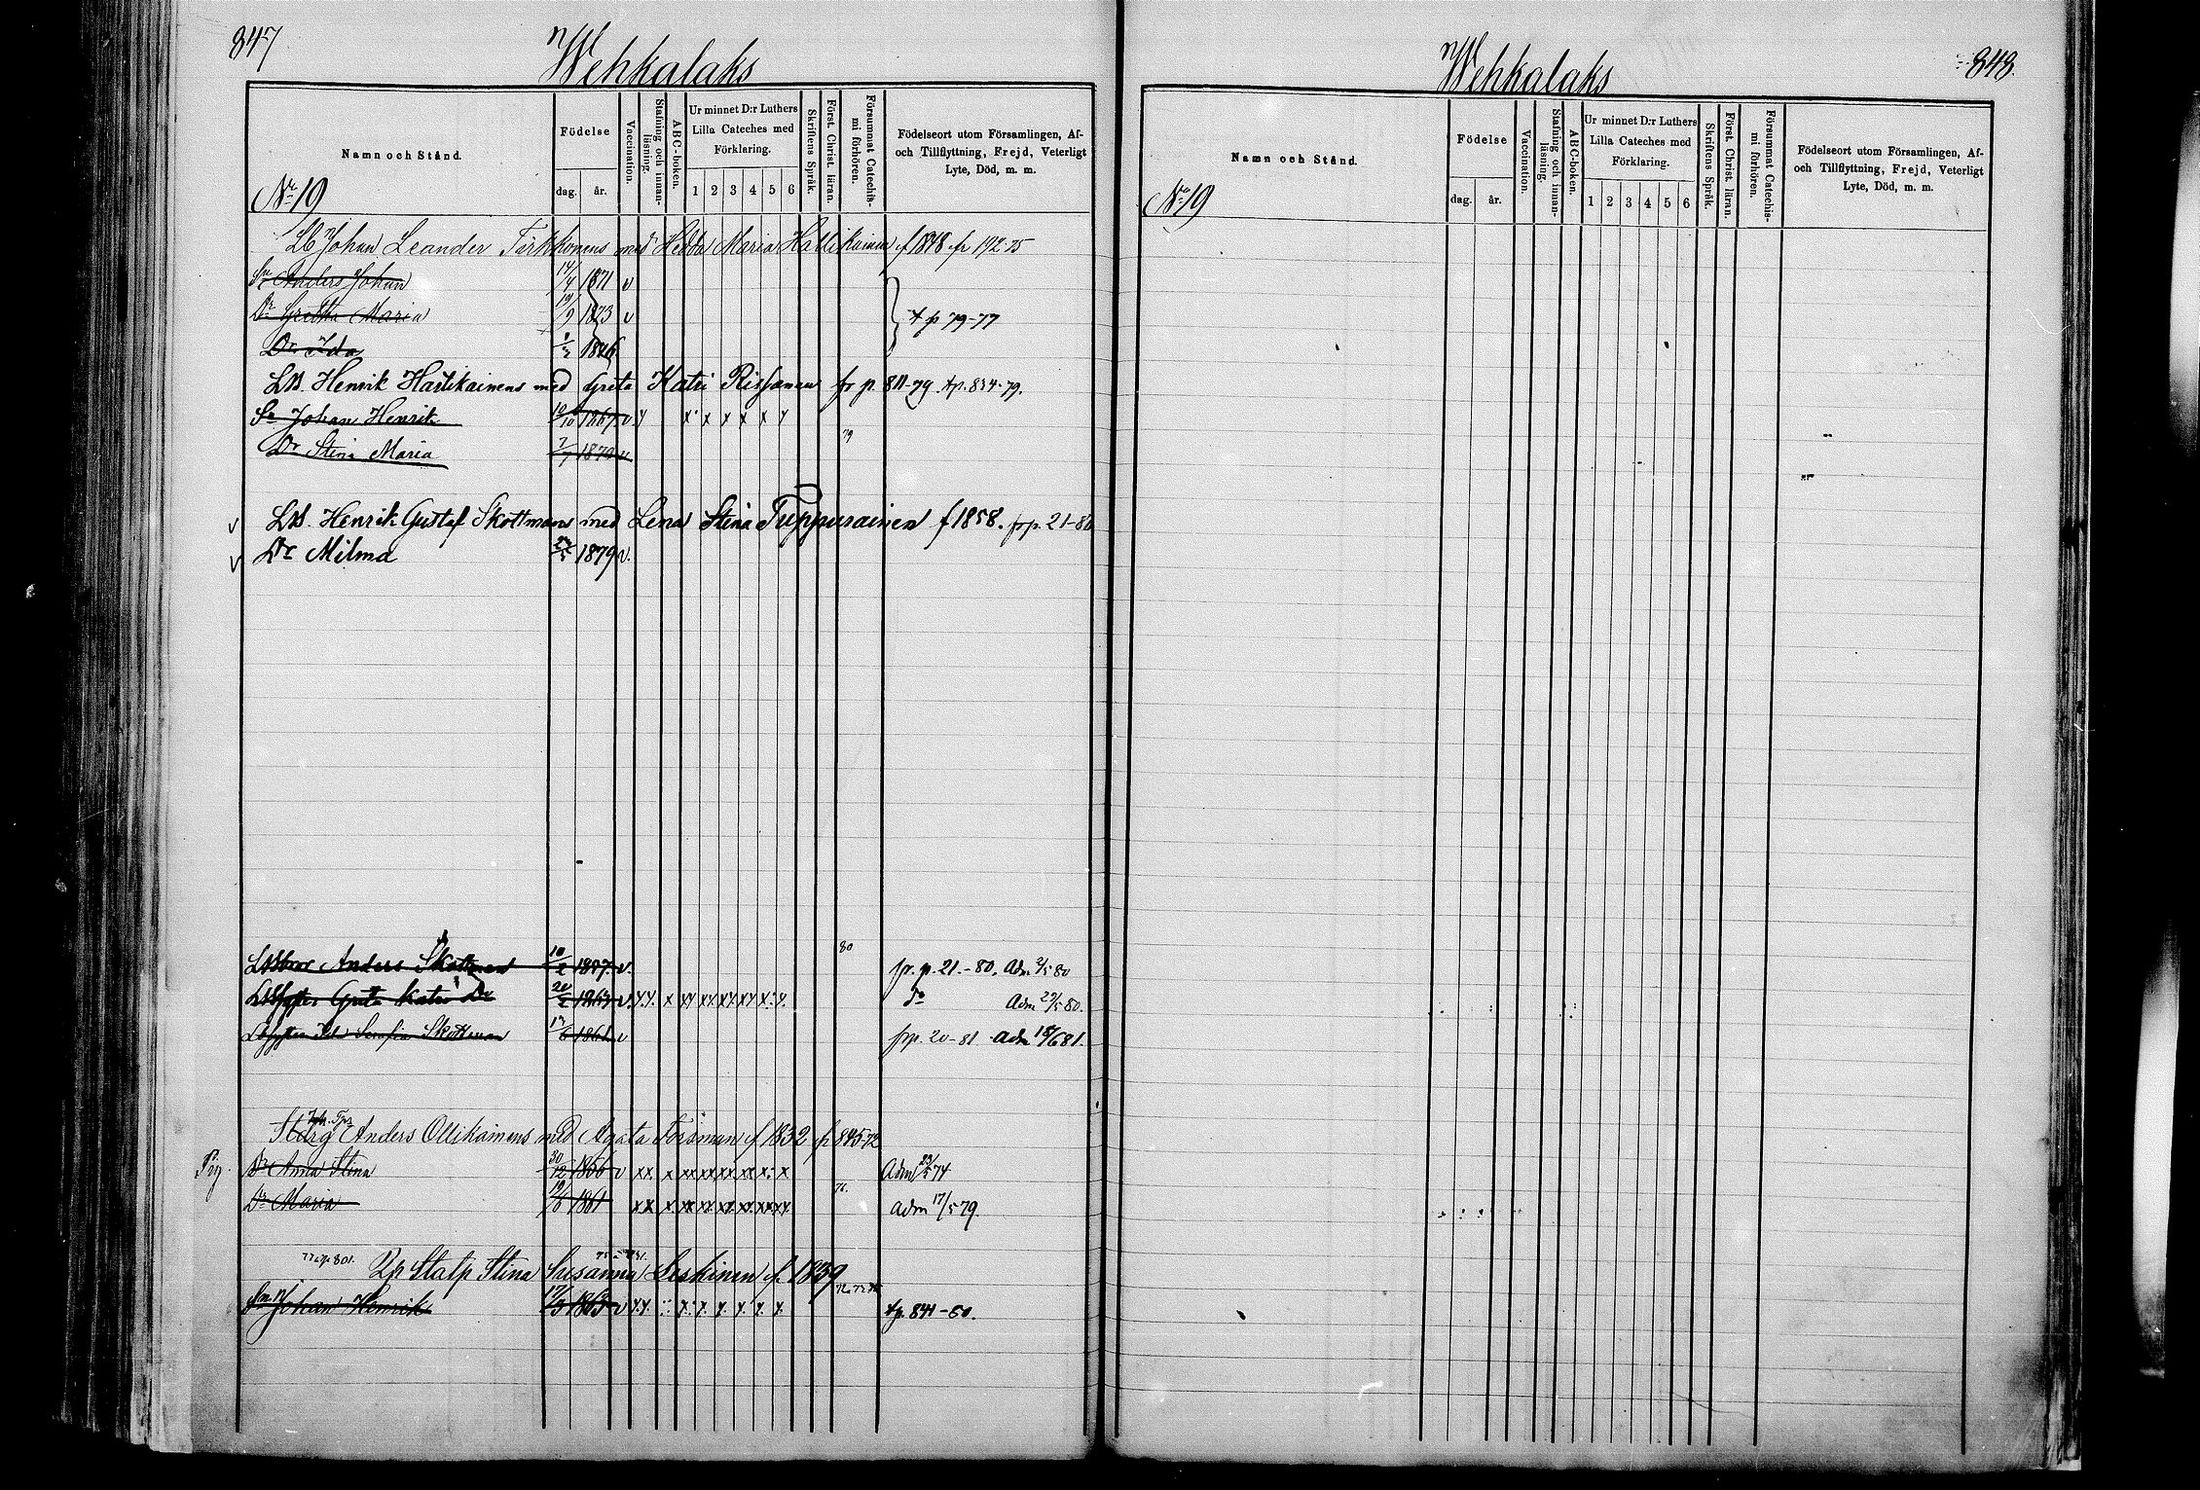 847
Wehkalaks
Namn och Stånd.
Födelse
dag. år.
Vaccination.
Stafning och innan-läsning.
ABC-boken.
Ur minnet D:r Luthers
Lilla Cateches med
Förklaring.
1 2 3 4 5 6
Skriftens Språk.
Först. Christ. läran.
Försummat Catechis-mi förhören.
Födelseort utom Församlingen, Af-
och Tillflyttning, Frejd, Veterligt
Lyte, Död, m. m.
No 19
Johan Leander med Hedda Maria f 1848 fr 192-75
Sn Anders Johan 14/4 1871 v
Dr Gretha Maria 19/9 1873 v t p 79-77
Dr Ida
Henrik Hartikainens med Greta Katri Rissanen fr p. 811-79. tp. 834-79.
Sn Johan Henrik 10/10 1867 v. y x x x x x y
79
Dr Stina Maria 7/7 1872 v
Henrik Gustaf Skottmans med Lena Stina Tuppurainen f 1858. frp. 21-80
Dr Milma 1879 v.
80
Anders Skottman 10/2 1847 v. fr. p. 21.-80. Adm 2/5 80
Greta Katri Do 20/2 1863 v do Adm 23/5 80.
Serafia Skottman 1861 v frp. 20-81 Adm 18/6 81.
Anders Ollikainens med Agata Forsman f 1832 fr 845-72
Pig. Dr Anna Stina 30/12 1856 v xx x xx xx xx xx x. x Adm 23/5 74
76.
Dr Maria 19/6 1861 xx x xx xx xx xx xx xy adm 17/5 79.
Stina Susanna Leskinen f. 1839
Sn Johan Henrik 17/3 1863 v tp. 841-80.
848.
Wehkalaks
Namn och Stånd.
Födelse
dag. år.
Vaccination.
Stafning och innan-läsning.
ABC-boken.
Ur minnet D:r Luthers
Lilla Cateches med
Förklaring.
1 2 3 4 5 6
Skriftens Språk.
Först. Christ. läran.
Försummat Catechis-mi förhören.
Födelseort utom Församlingen, Af-
och Tillflyttning, Frejd, Veterligt
Lyte, Död, m. m.
No 19